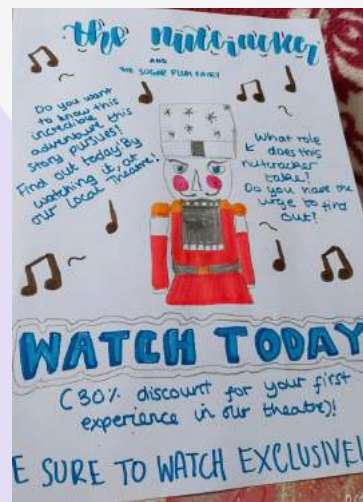 the nutcracker
AND
THE SUGAR PLUM FAIRY
Do you want
to know this
incredible
adventure this
story pursues!
Find out today! By
watching it, at
our local Theatre!
What role
does this
nutcracker
take?
Do you have the
urge to find
out?
WATCH TODAY
(30% discount for your first
experience in our theatre)!
E SURE TO WATCH EXCLUSIVEL